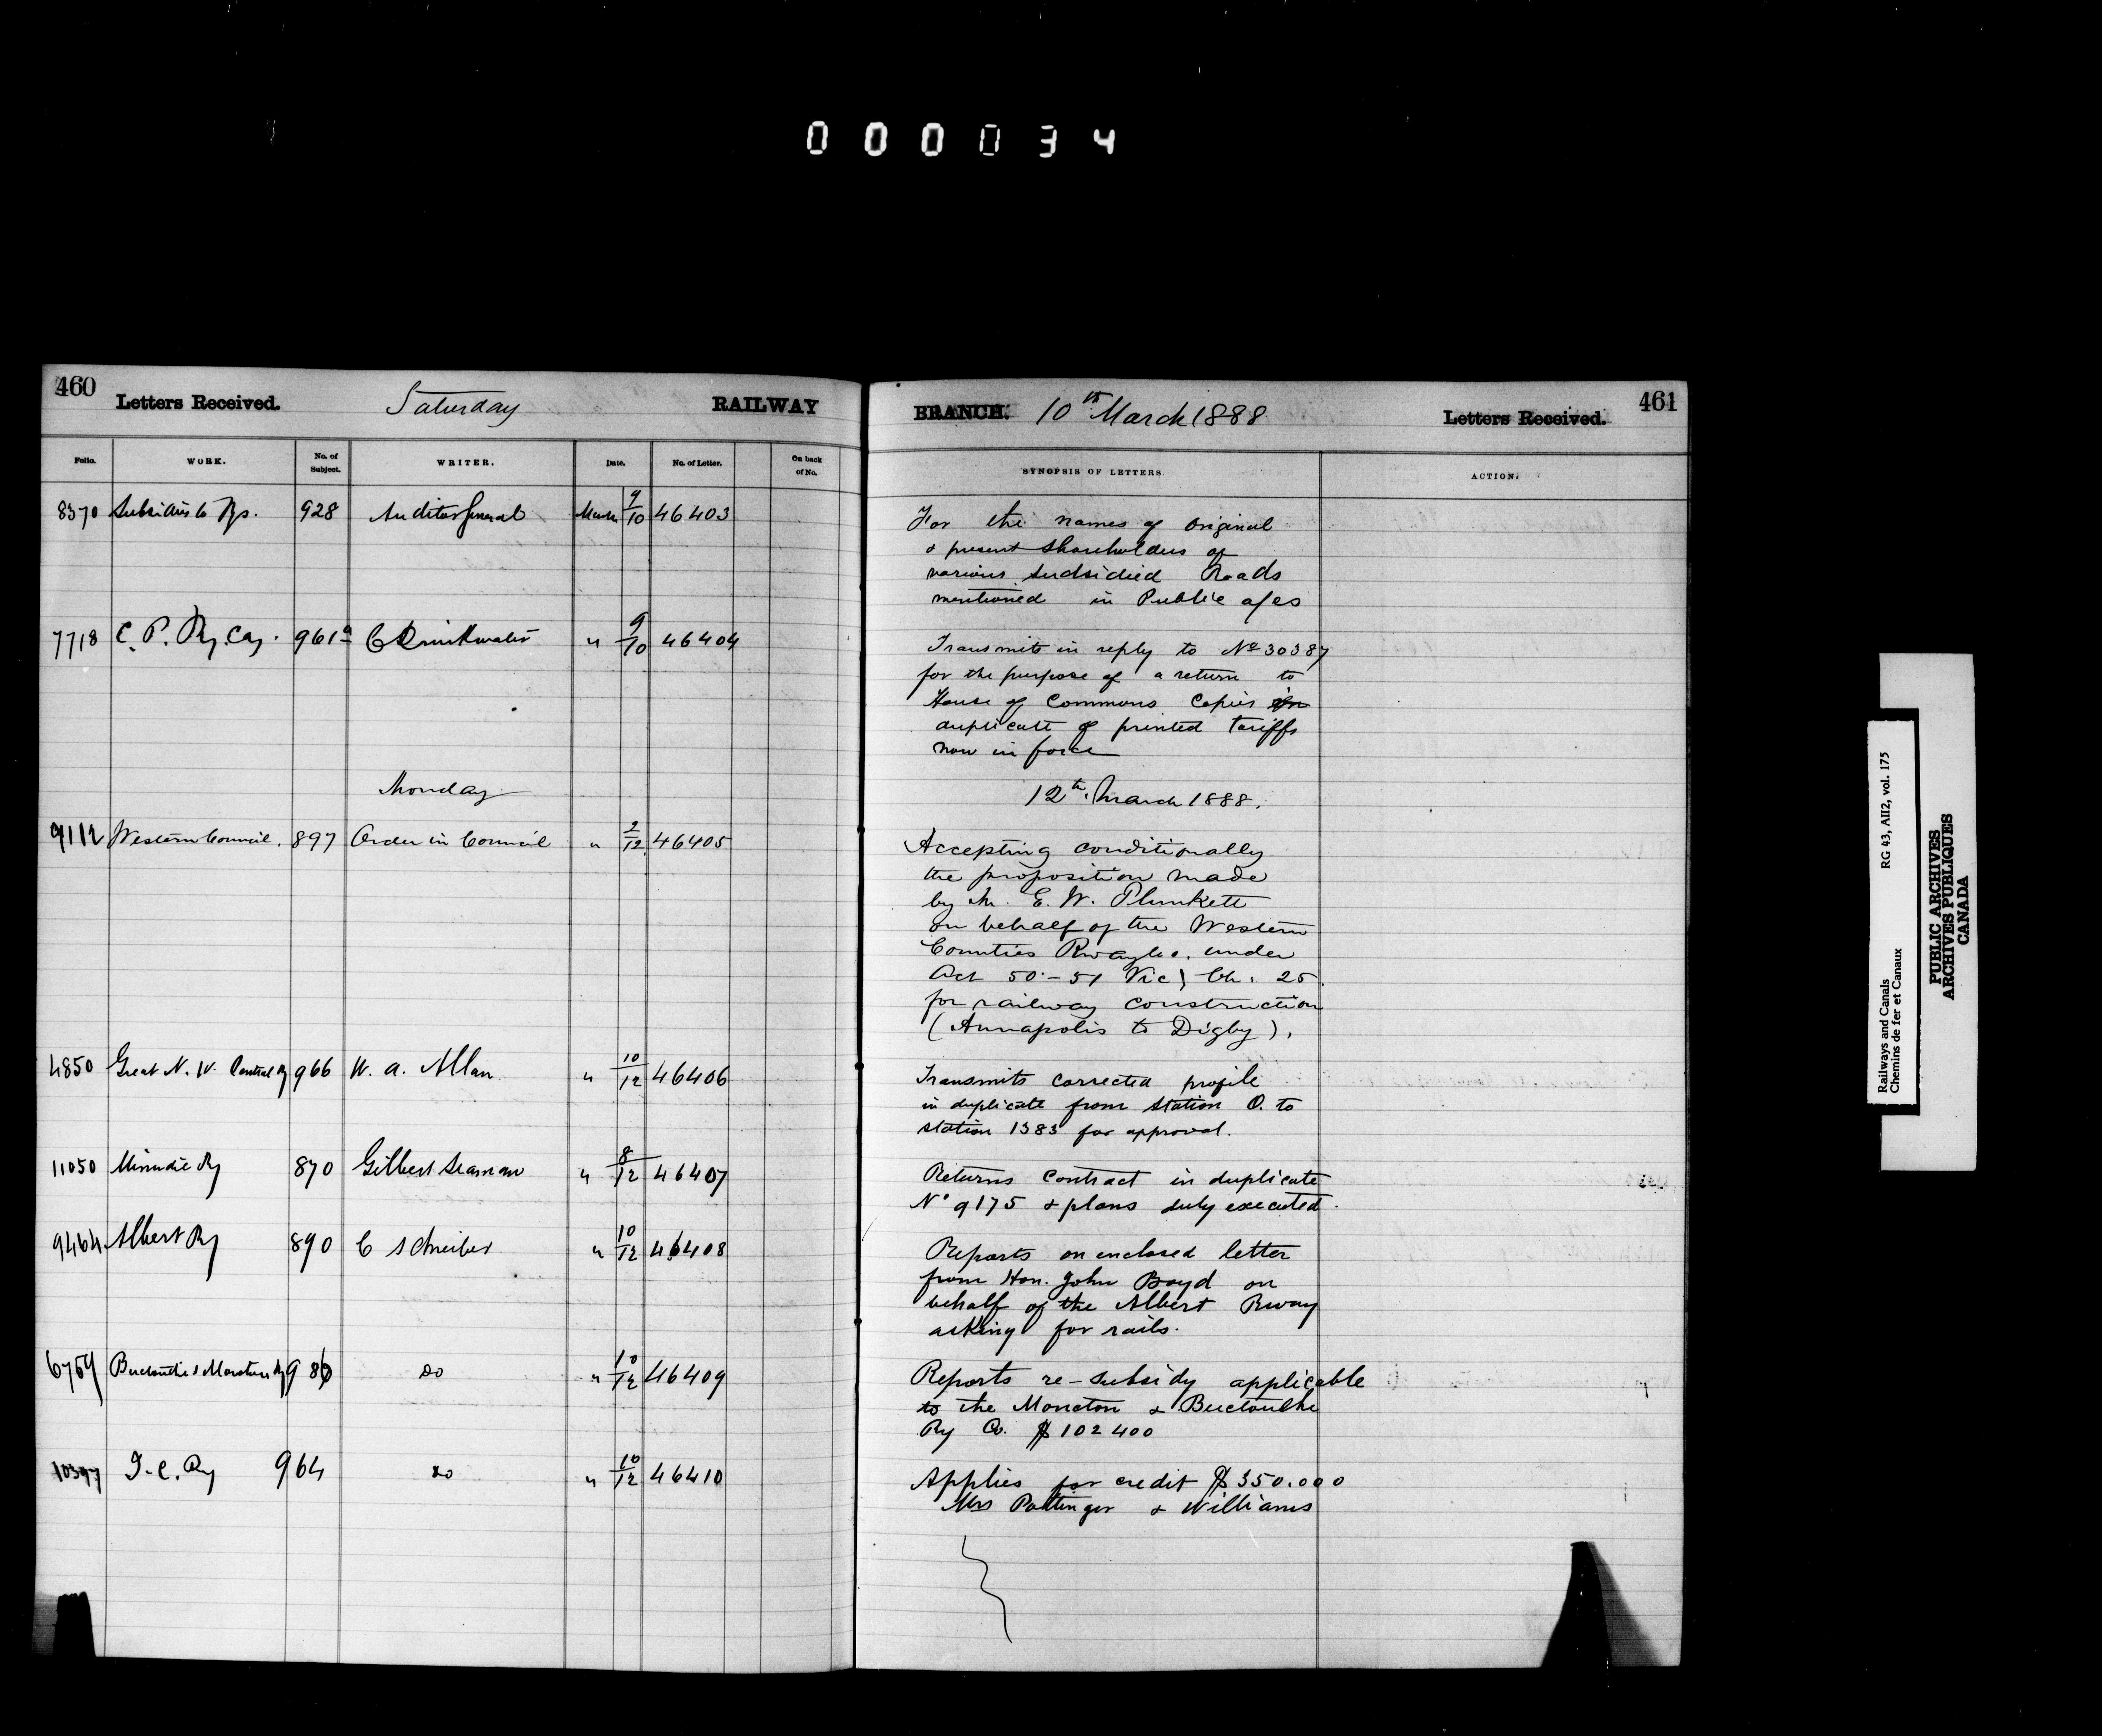 000034
460
Letters Received.
Saturday
RAILWAY
BRANCH.
10th March 1888
Letters Received.
461
Folio.
WORK.
No. of Subject.
WRITER.
Date.
No. of Letter.
On back of No.
SYNOPSIS OF LETTERS.
ACTION.
8370 Subsidies to Rys. 928 Auditor General March 9/10 46403
For the names of original
& present shareholders of
various subsidied Roads
mentioned in Public a/cs
7718 C. P. Ry. Coy. 961a C Drinkwater " 9/10 46404
Transmits in reply to No 30387
for the purpose of a return to
House of Commons Copies in
duplicate of printed tariffs
now in force
Monday
12th March 1888.
9112 Western Council. 897 Order in Council " 2/12 46405
Accepting conditionally
the proposition made
by Mr. E. W. Plunkett
on behalf of the Western
Counties Rway Co. under
Act 50-51 Vic) Ch. 25.
for railway construction
(Annapolis to Digby).
4850 Great N. W. Central Ry 966 W. A. Allan " 10/12 46406
Transmits corrected profile
in duplicate from Station O. to
Station 1383 for approval.
11050 Minudie Ry 870 Gilbert Seaman " 8/12 46407
Returns contract in duplicate
No 9175 & plans duly executed.
9464 Albert Ry 890 C Schreiber " 10/12 46408
Reports on enclosed letter
from Hon. John Boyd on
behalf of the Albert Rway
asking for rails.
6759 Buctouche & Moncton Ry 980 do " 10/12 46409
Reports re-subsidy applicable
to the Moncton & Buctouche
Ry Co. $102400
10397 I. C. Ry 964 do " 10/12 46410
Applies for credit $350.000
Mrs Pottinger & Williams
Railways and Canals RG 43, AII2, vol. 175
Chemins de fer et Canaux
PUBLIC ARCHIVES
ARCHIVES PUBLIQUES
CANADA